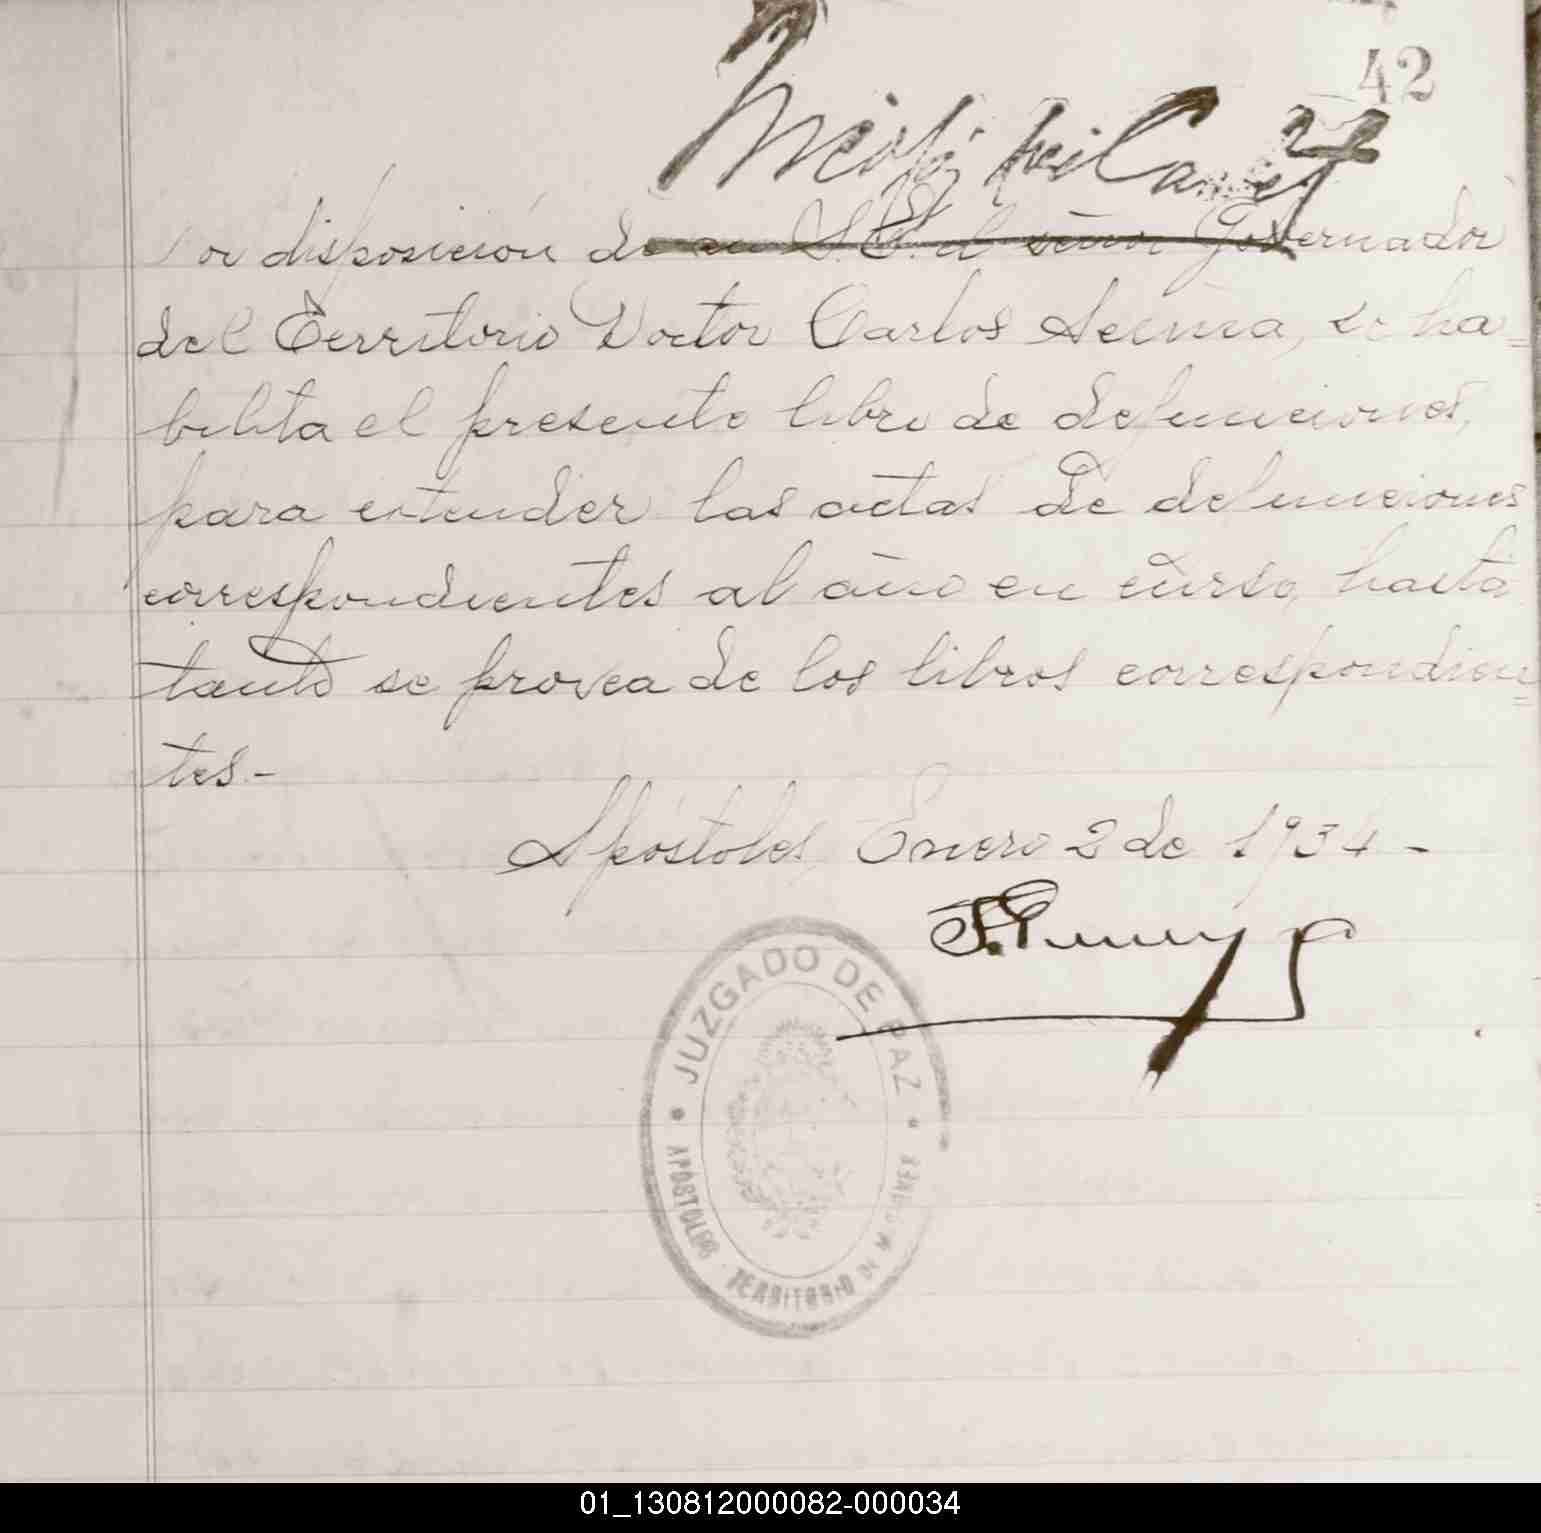 42
Por disposicion de S.S. el señor Governador
del Territorio Doctor Carlos Acuña, se ha=
bilita el presente libro de defunciones,
para extender las actas de defunciones
correspondientes al año en curso, hasta
tanto se provea de los libros correspondien=
tes.-
Apóstoles, Enero 2 de 1934-
JUZGADO DE PAZ
APOSTOLES · TERRITORIO DE MISIONES
01_130812000082-000034